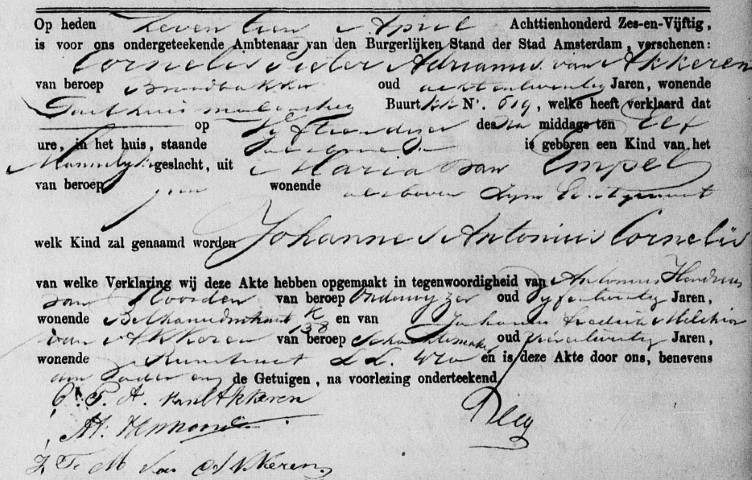 Op heden Zeventien April Achttienhonderd Zes-en-Vijftig,
is voor ons ondergeteekende Ambtenaar van den Burgerlijken Stand der Stad Amsterdam, verschenen:
Cornelis Pieter Adrianus van Akkeren
van beroep Broodbakker oud achtentwintig Jaren, wonende
Buurt KK N°. 619, welke heeft verklaard dat
op Vyftiendezer des na middags ten Elf
ure, in het huis, staande is geboren een Kind van het
Mannelyk geslacht, uit Maria van Empel
van beroep geen wonende als boven zyn Echtgenoot
welk Kind zal genaamd worden Johannes Antonius Cornelis
van welke Verklaring wij deze Akte hebben opgemaakt in tegenwoordigheid van Antonius Hendricus
van van beroep Onderwyzer oud Jaren,
wonende K 138 en van Johannes Frederik Melchior
van Akkeren van beroep oud Jaren,
wonende LL en is deze Akte door ons, benevens
den Vader en de Getuigen, na voorlezing onderteekend
C. P. A. van Akkeren
J. F. M. van Akkeren